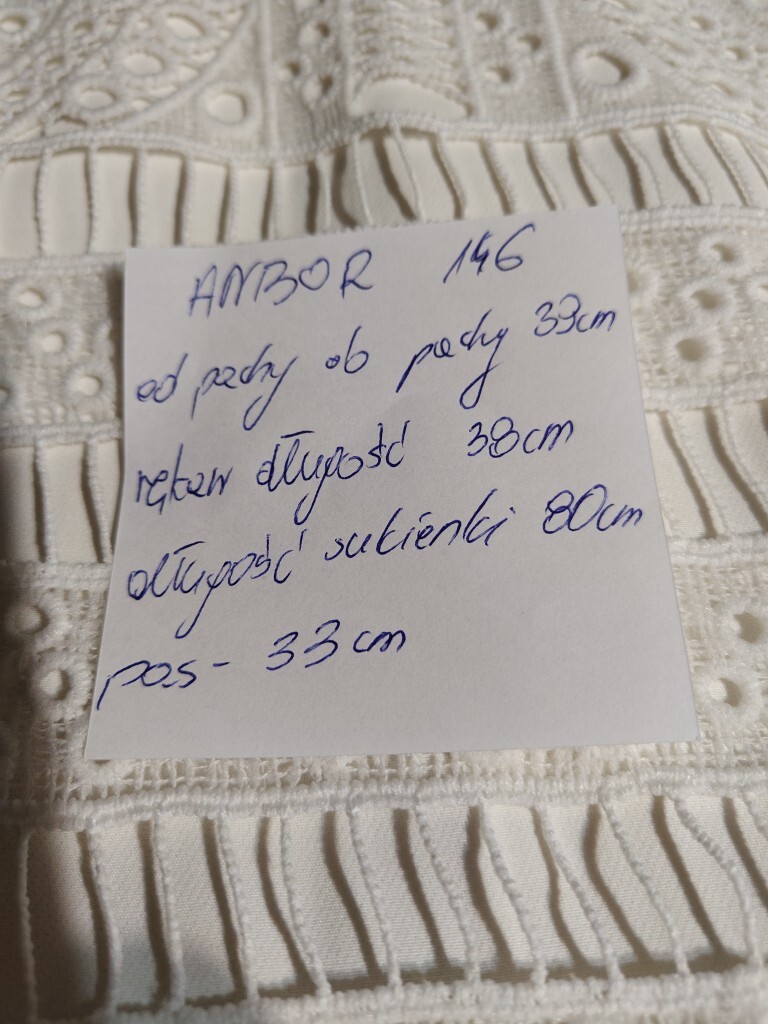 ANBOR 146
od pachy do pachy 39cm
rękaw długość 38cm
długość sukienki 80cm
pas - 33cm